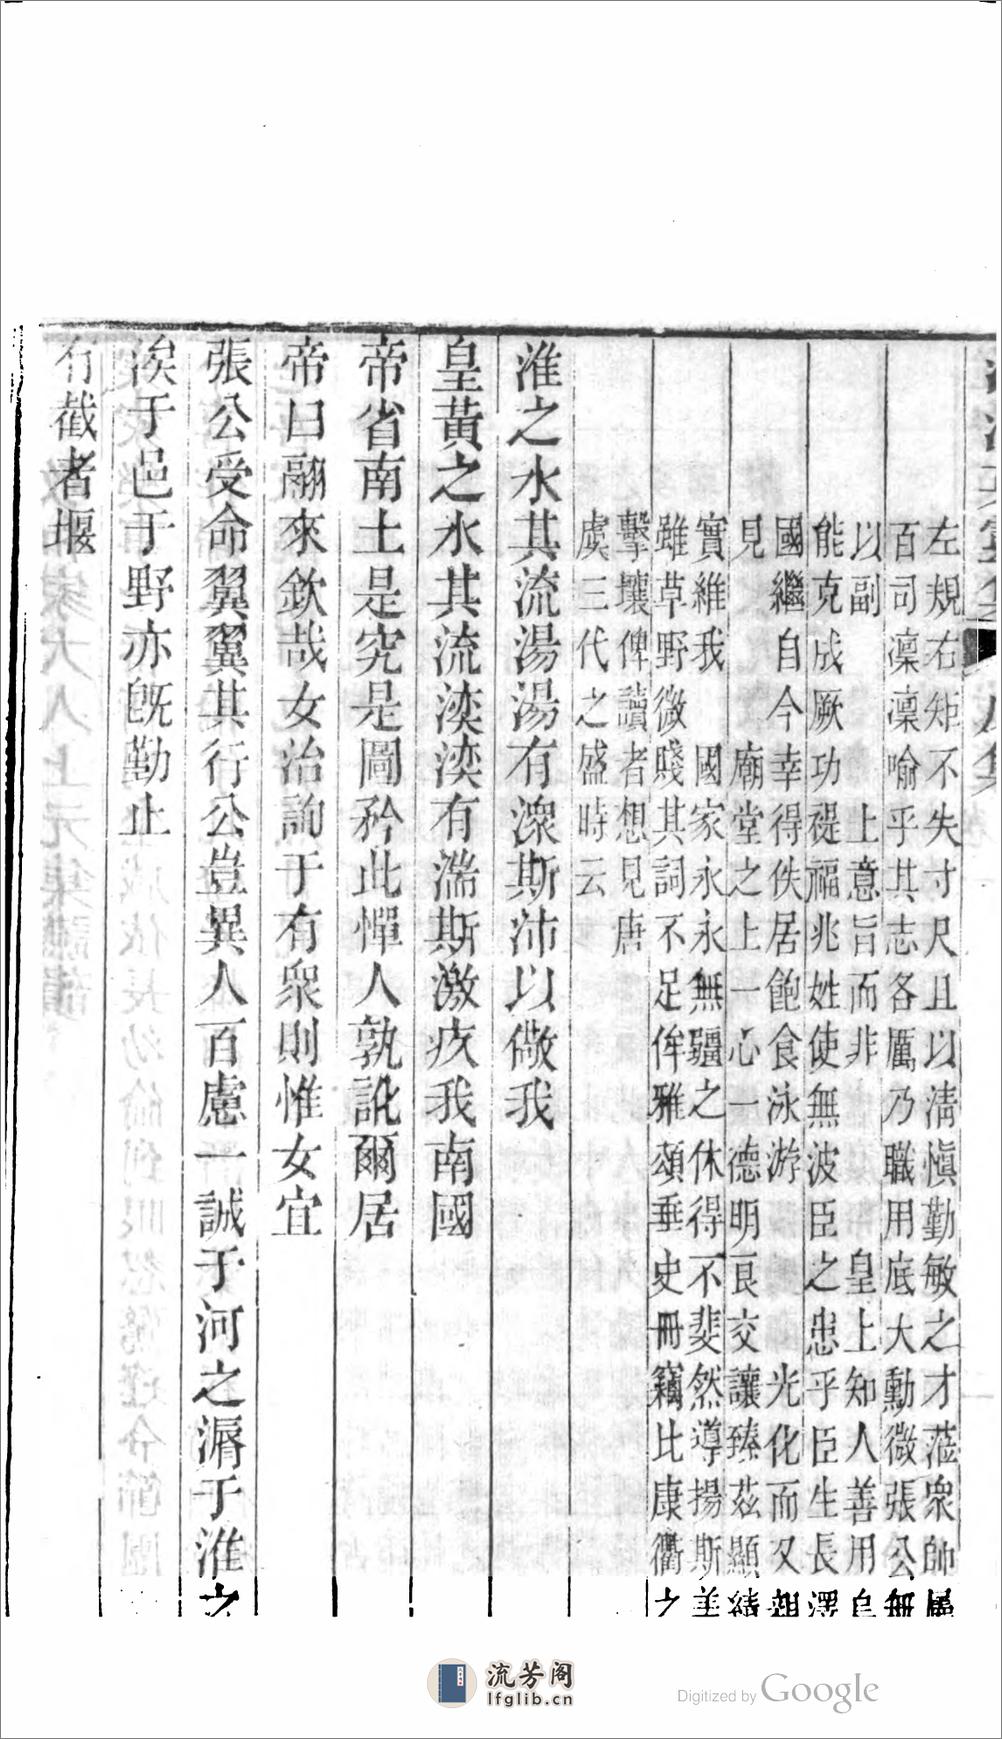 左規右矩不失寸尺且以清慎勤敏之才蒞衆帥屬
百司凜凜喻乎其志各厲乃職用底大勳微張公無
以副　上意旨而非　皇上知人善用
能克成厥功禔福兆姓使無波臣之患乎臣生長澤
國繼自今幸得佚居飽食泳游　光化而又
見　廟堂之上一心一德明良交讓臻茲顯
實維我　國家永永無疆之休得不斐然導揚斯美
雖草野微賤其詞不足侔雅頌垂史冊竊比康衢之
擊壤俾讀者想見唐
虞三代之盛時云
淮之水其流湯湯有潀斯沛以儆我
皇黃之水其流湙湙有濡斯激疚我南國
帝省南土是究是圖矜此憚人孰訛爾居
帝曰翮來欽哉女治詢于有衆則惟女宜
張公受命翼翼其行公豈異人百慮一誠于河之漘于淮之
涘于邑于野亦旣勤止
有截者堰
流芳阁
lfglib.cn
Digitized by Google